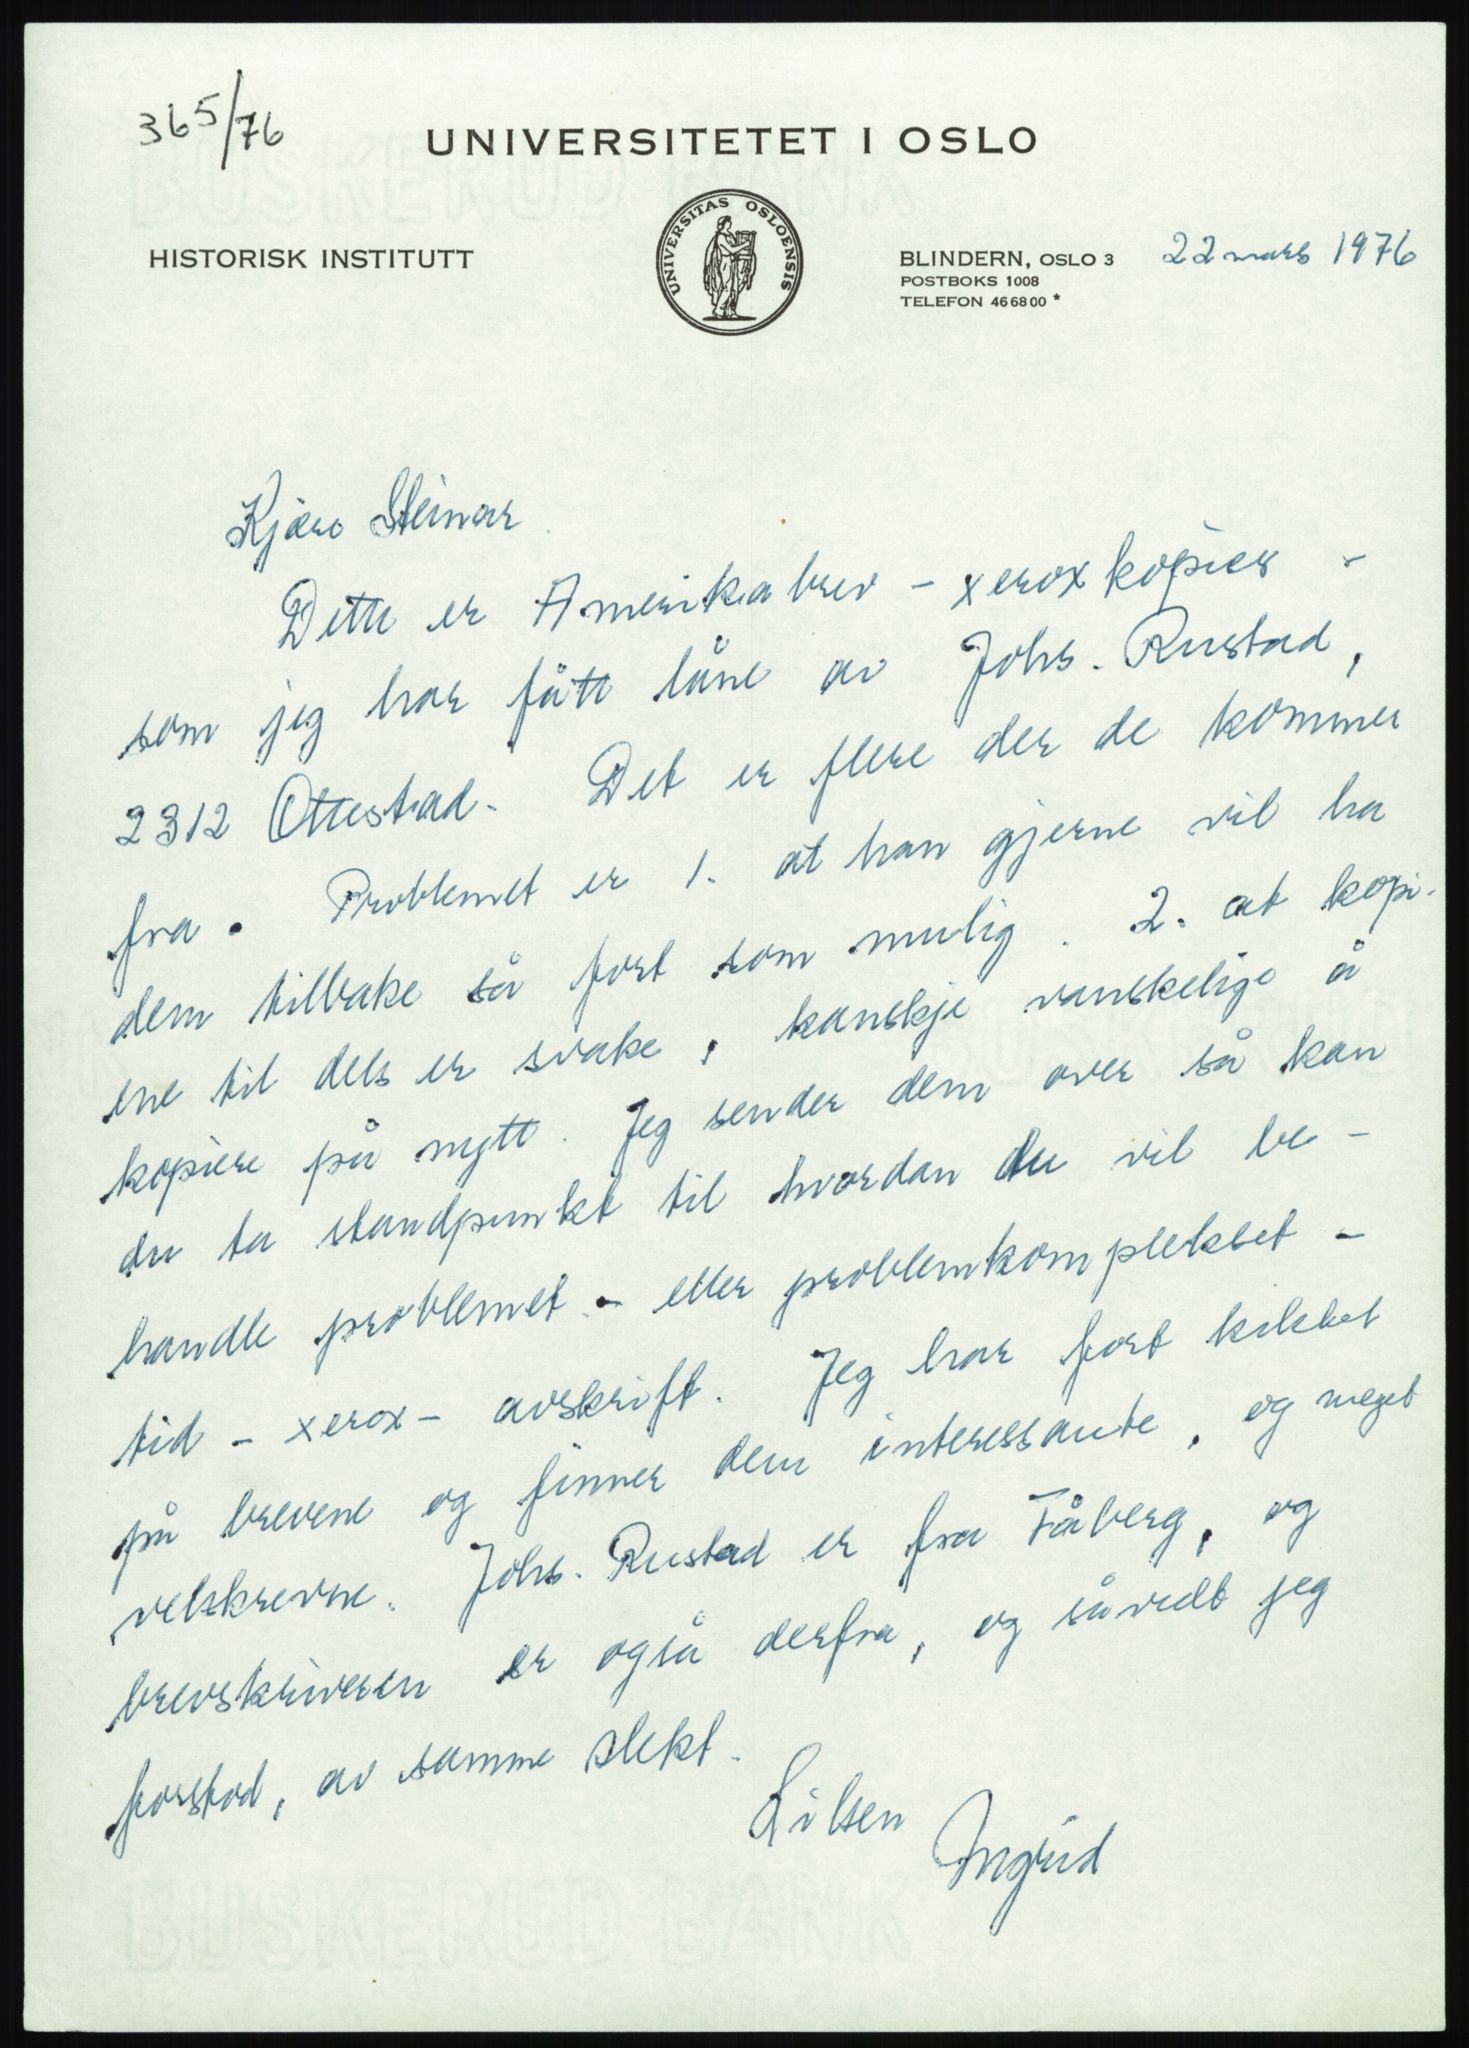 365/76
UNIVERSITETET I OSLO
UNIVERSITAS OSLOENSIS
HISTORISK INSTITUTT
BLINDERN, OSLO 3 22 mars 1976
POSTBOKS 1008
TELEFON 466800 *
Kjære Steinar
Dette er Amerikabrev - xeroxkopier -
som jeg har fått låne av Johs. Rustad,
2312 Ottestad. Det er flere der de kommer
fra. Problemet er 1. at han gjerne vil ha
dem tilbake så fort som mulig. 2. at kopi-
ene til dels er svake, kanskje vanskelige å
kopiere på nytt. Jeg sender dem over så kan
du ta standpunkt til hvordan du vil be-
handle problemet - eller problemkomplekset -
tid - xerox - avskrift. Jeg har fort kikket
på brevene og finner dem interessante, og meget
velskrevne. Johs. Rustad er fra Fåberg, og
brevskriveren er også derfra, og såvidt jeg
forstod, av samme slekt.
Hilsen
Ingrid
BUSKERUD BANK